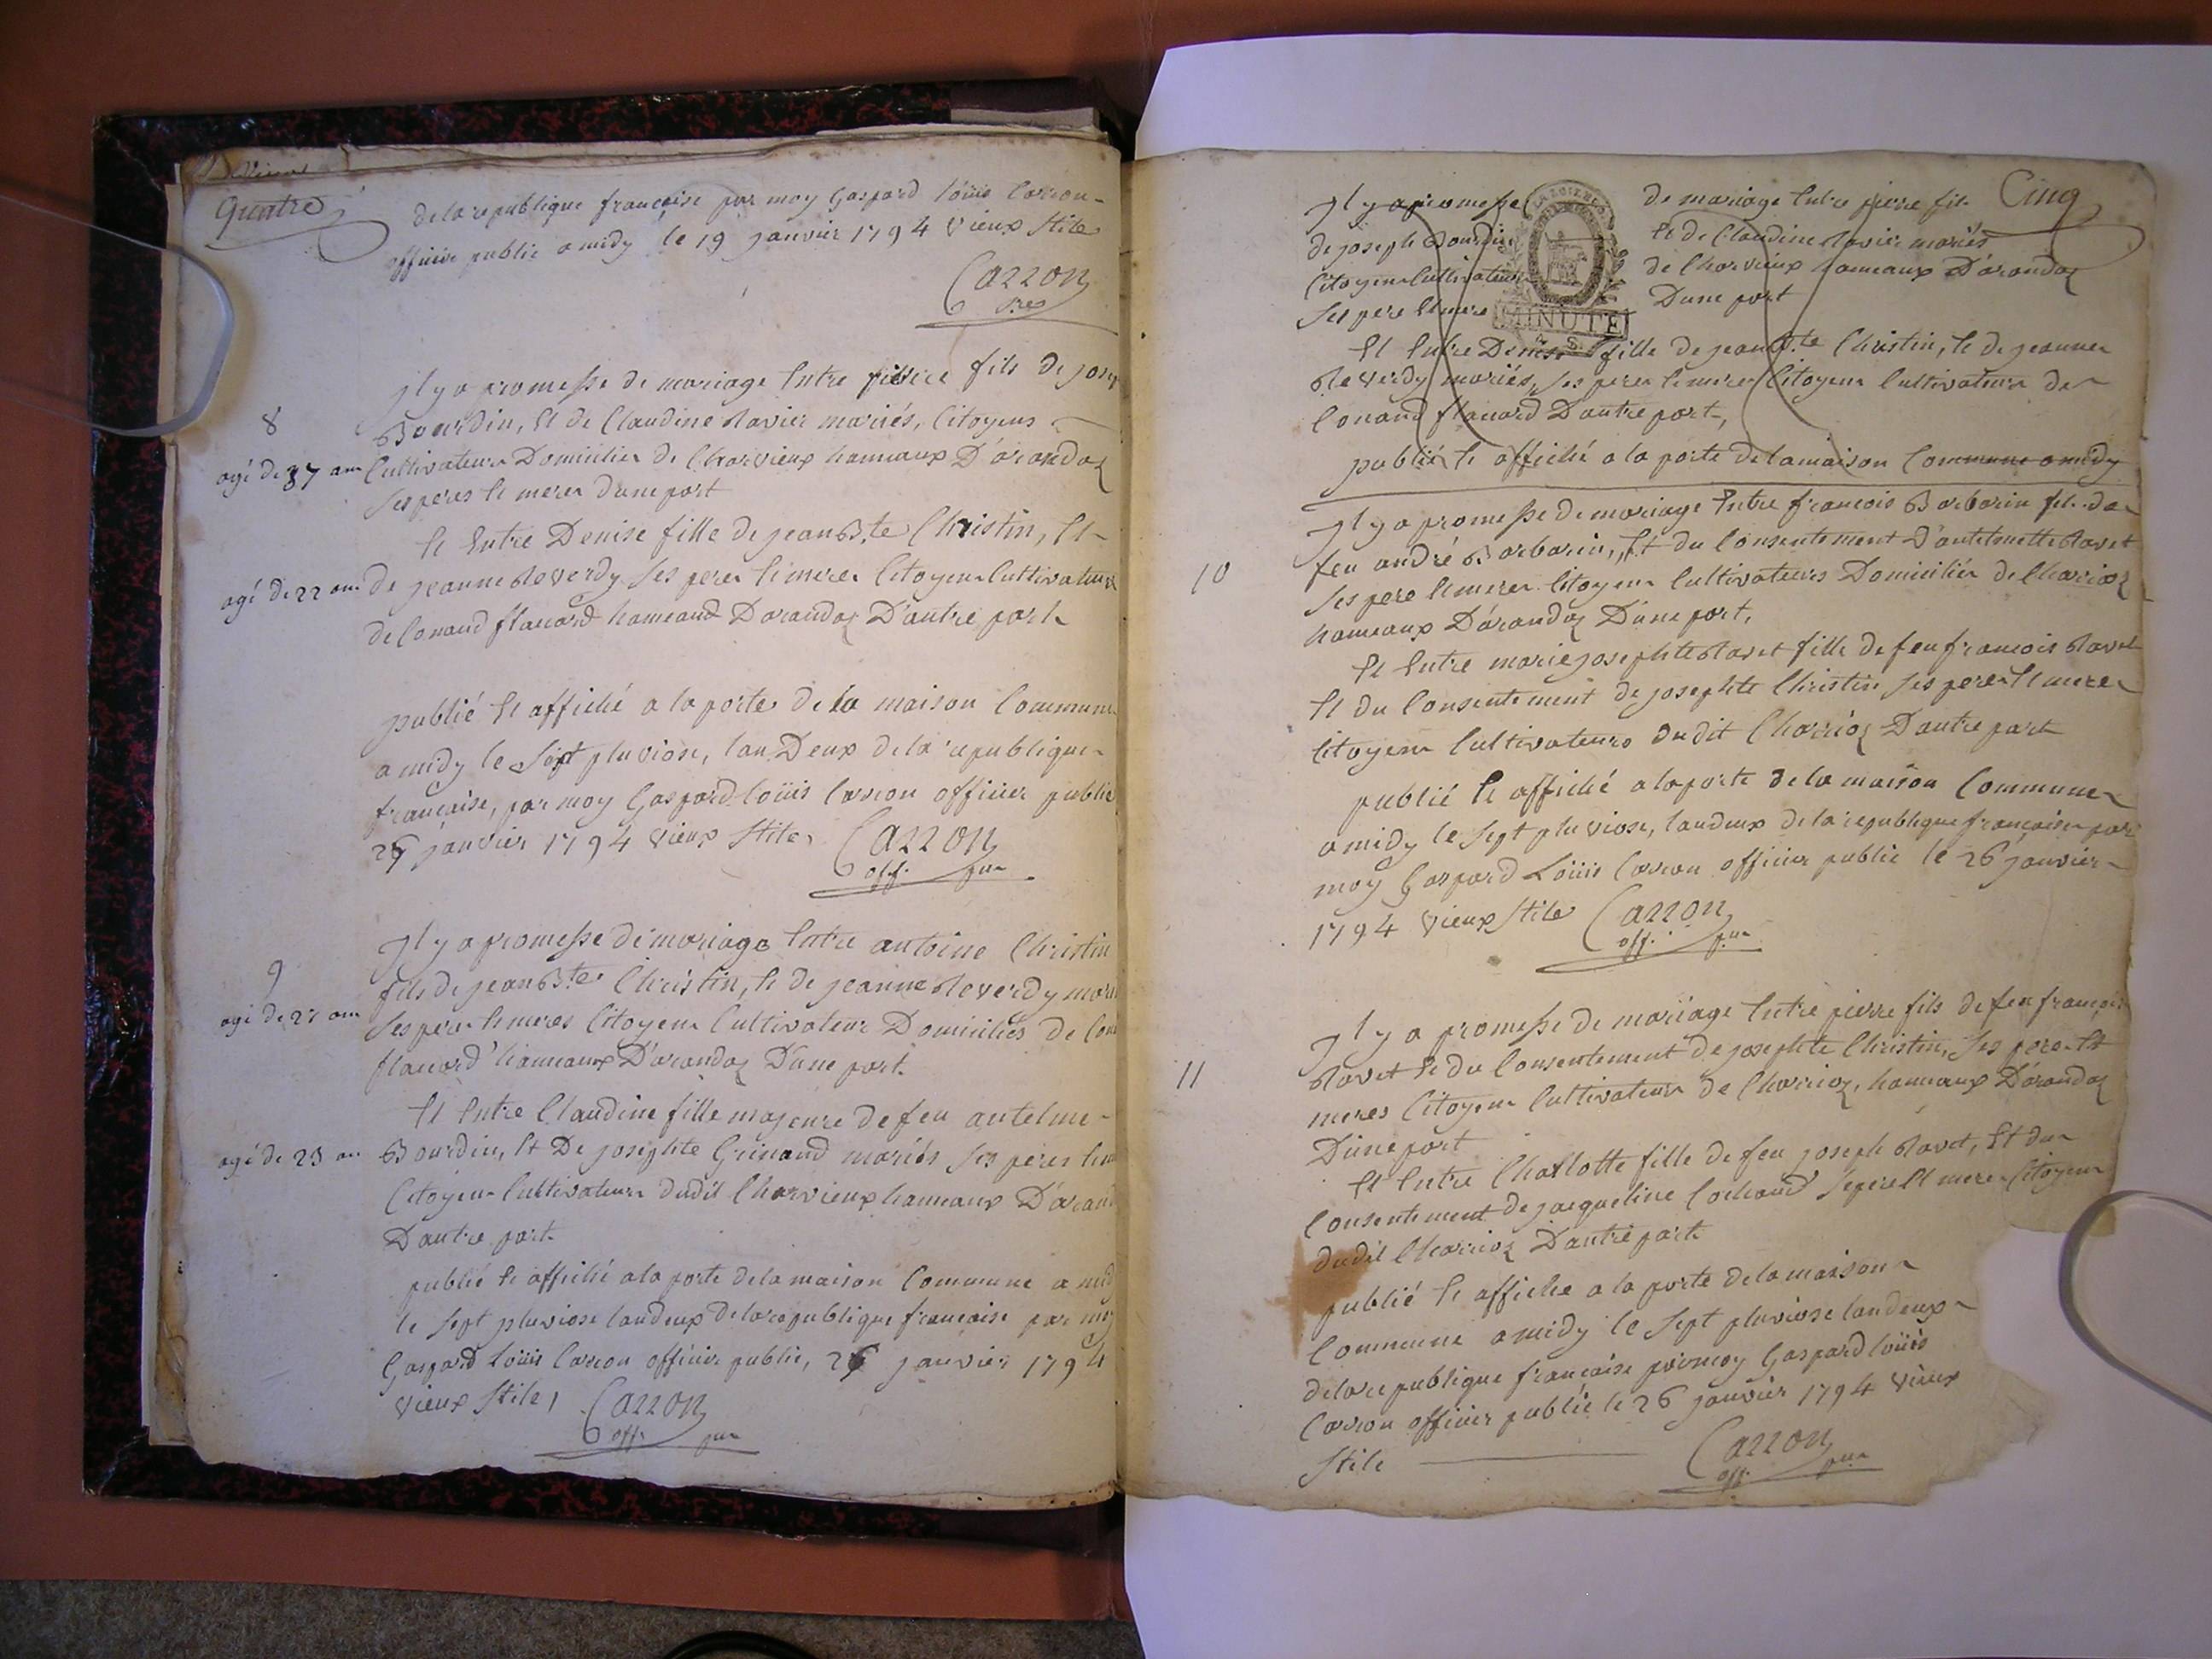 quatre
de la republique française par moy Gaspard Loüis Carron
officier public a midy le 19 janvier 1794 vieux stile
Carron
jl y a promesse de mariage Entre pierre fils de jose
8
Bourdin, Et de Claudine Ravier mariés, Citoyens
agé de 37 ans Cultivateurs Domiciliés de Charvieux hameaux D'arandaz
ses peres Et meres dune part
Et Entre Denise fille de jean B.te Christin, Et
agé de 22 ans de jeanne Reverdy ses peres Et meres Citoyens Cultivateurs
de Conand flacard hameaux Darandaz D'autre part
publié Et affiché a la porte de la maison Commune
a midy le sept pluviose, lan Deux de la republique
française, par moy Gaspard Loüis Carron officier public
26 janvier 1794 vieux stile Carron
off. pu
Jl y a promesse de mariage Entre antoine Christin
9
fils de jean B.te Christin, Et de jeanne Reverdy mari
agé de 27 ans
ses peres Et meres Citoyens Cultivateurs Domiciliés de Con
flacard hameaux D'arandaz Dune part.
Et Entre Claudine fille majeure de feu antelme
agé de 23 an Bourdin, Et De josephte Grinand mariés ses peres Et m
Citoyens Cultivateurs dudit Charvieux hameaux D'arand
D'autre part
publié Et affiché a la porte de la maison Commune a mid
le sept pluviose landeux de la republique française par moy
Gaspard Loüis Carron officier public, 26 janvier 1794
vieux stile, Carron
off. pu
Cinq
Jl y a promesse de mariage Entre pierre fils
de joseph Bourdin Et de Claudine Ravier mariés
Citoyens Cultivateurs de Charvieux hameaux D'arandaz
ses pere Et mere Dune part
MINUTE
Et Entre Denise fille de jean B.te Christin, Et de jeanne
Reverdy mariés, ses peres Et meres Citoyens Cultivateurs de
Conand flacard D'autre part,
publié Et affiché a la porte de la maison Commune a midy
Jl y a promesse de mariage Entre francois Barbarin fils de
10
feu andré Barbarin, Et du Consentement D'antelmette Ravet
ses pere Et mere Citoyens Cultivateurs Domiciliés de Charrioz
hameaux D'arandaz Dune part,
Et Entre marie josephte Ravet fille de feu francois Ravet
Et du Consentement de josephte Christin ses peres Et meres
Citoyens Cultivateurs dudit Charrioz D'autre part
publié Et affiché a la porte de la maison Commune
a midy le sept pluviose, landeux de la republique française par
moy Gaspard Loüis Carron officier public le 26 janvier
1794 vieux stile Carron
off. pu
Jl y a promesse de mariage Entre pierre fils de feu françois
11
Ravet Et du Consentement de josephte Christin, ses pere Et
meres Citoyens Cultivateurs de Charrioz, hameaux D'arandaz
Dune part
Et Entre Charlotte fille de feu joseph Ravet, Et du
Consentement de jacqueline Cochand ses pere Et mere Citoyens
dudit Charrioz D'autre part
publié Et affiché a la porte de la maison
Commune a midy le sept pluviose landeux
de la republique française par moy Gaspard Loüis
Carron officier public le 26 janvier 1794 vieux
stile Carron
off. pu